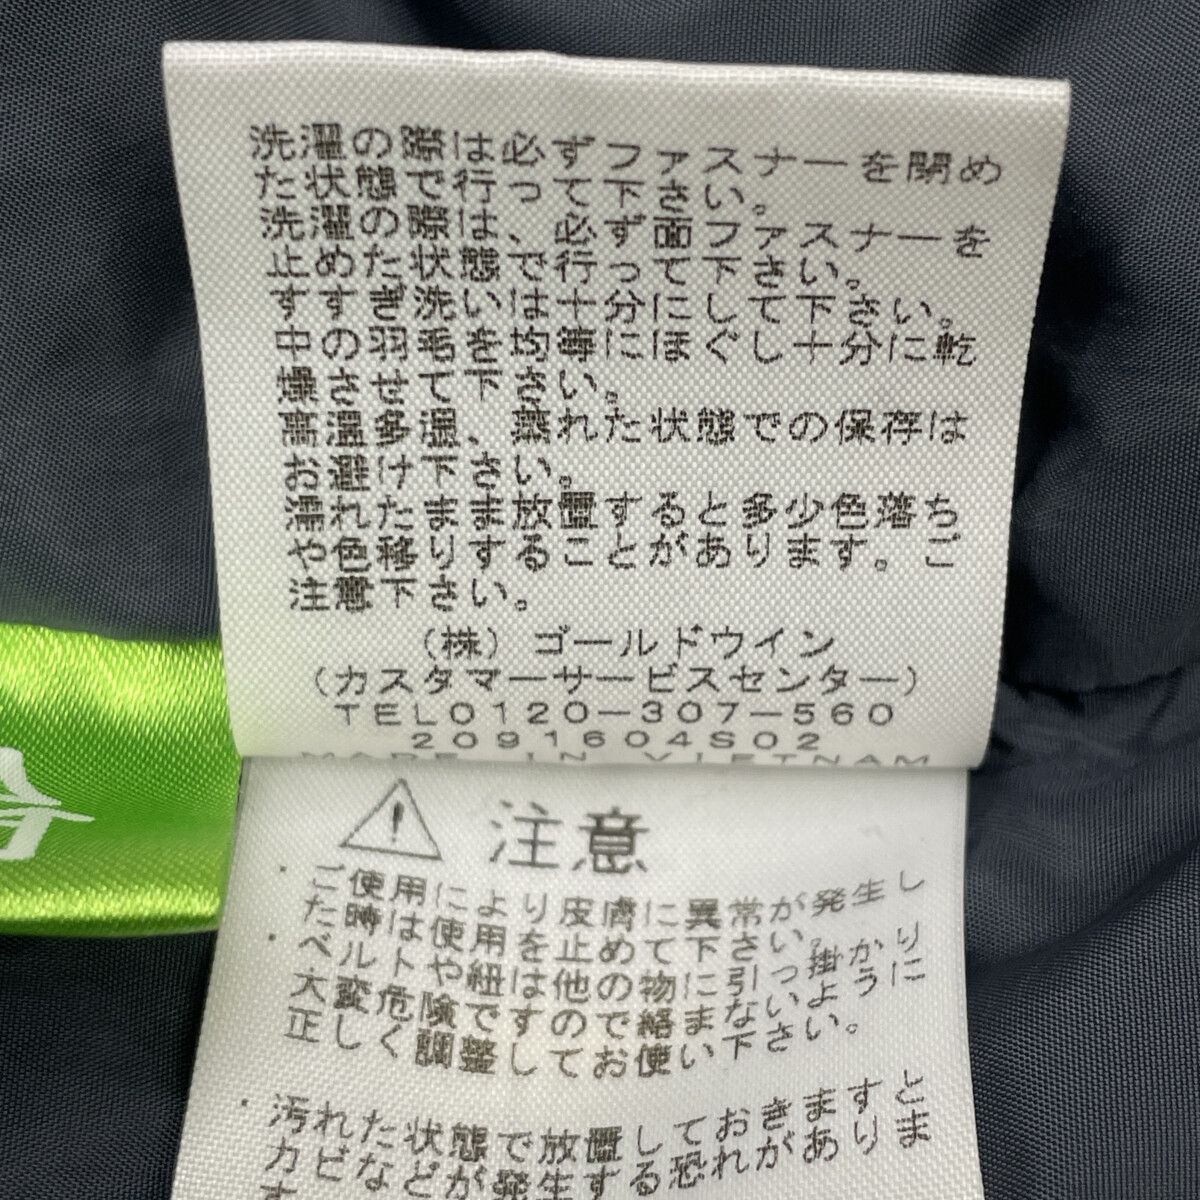 洗濯の際は必ずファスナーを閉め
た状態で行って下さい。
洗濯の際は、必ず面ファスナーを
止めた状態で行って下さい。
すすぎ洗いは十分にして下さい。
中の羽毛を均等にほぐし十分に乾
燥させて下さい。
高温多湿、蒸れた状態での保存は
お避け下さい。
濡れたまま放置すると多少色落ち
や色移りすることがあります。ご
注意下さい。
(株)ゴールドウイン
(カスタマーサービスセンター)
TEL0120-307-560
2091604S02
MADE IN VIETNAM
注意
・ご使用により皮膚に異常が発生し
た時は使用を止めて下さい。
・ベルトや紐は他の物に引っ掛かり
大変危険ですので絡まないように
正しく調整してお使い下さい。
・汚れた状態で放置しておきますと
カビなどが発生する恐れがありま
す。